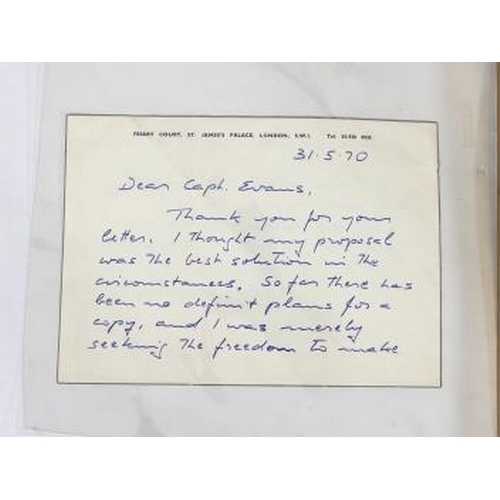 FRIARY COURT, ST. JAMES'S PALACE, LONDON, S.W.1. Tel:
31·5·70
Dear Capt. Evans,
Thank you for your
letter. I thought my proposal
was the best solution in the
circumstances. So far there has
been no definit plans for a
copy, and I was merely
seeking the freedom to make